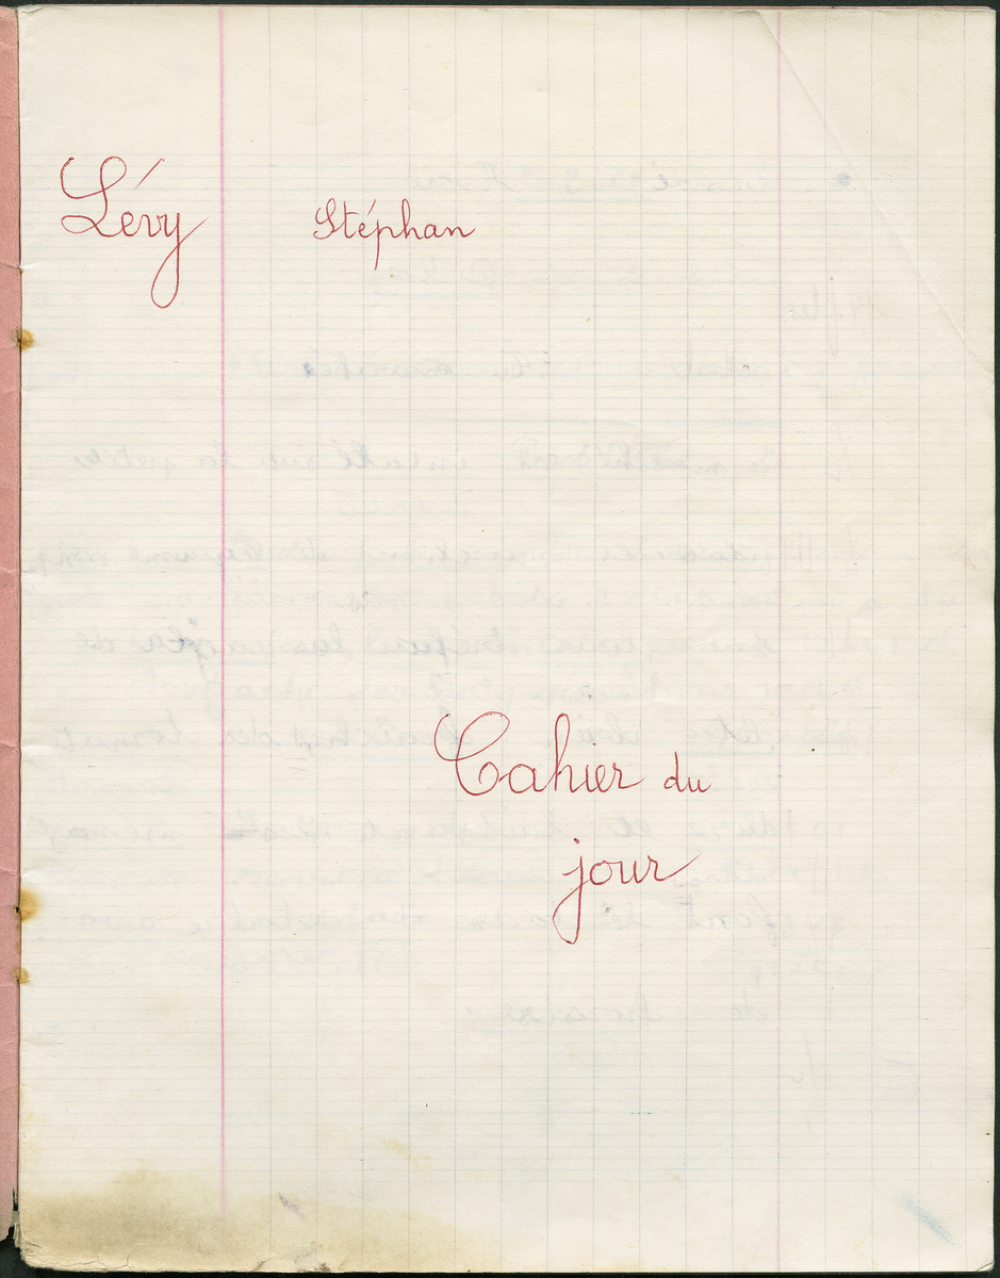 Lévy Stéphan
Cahier du
jour